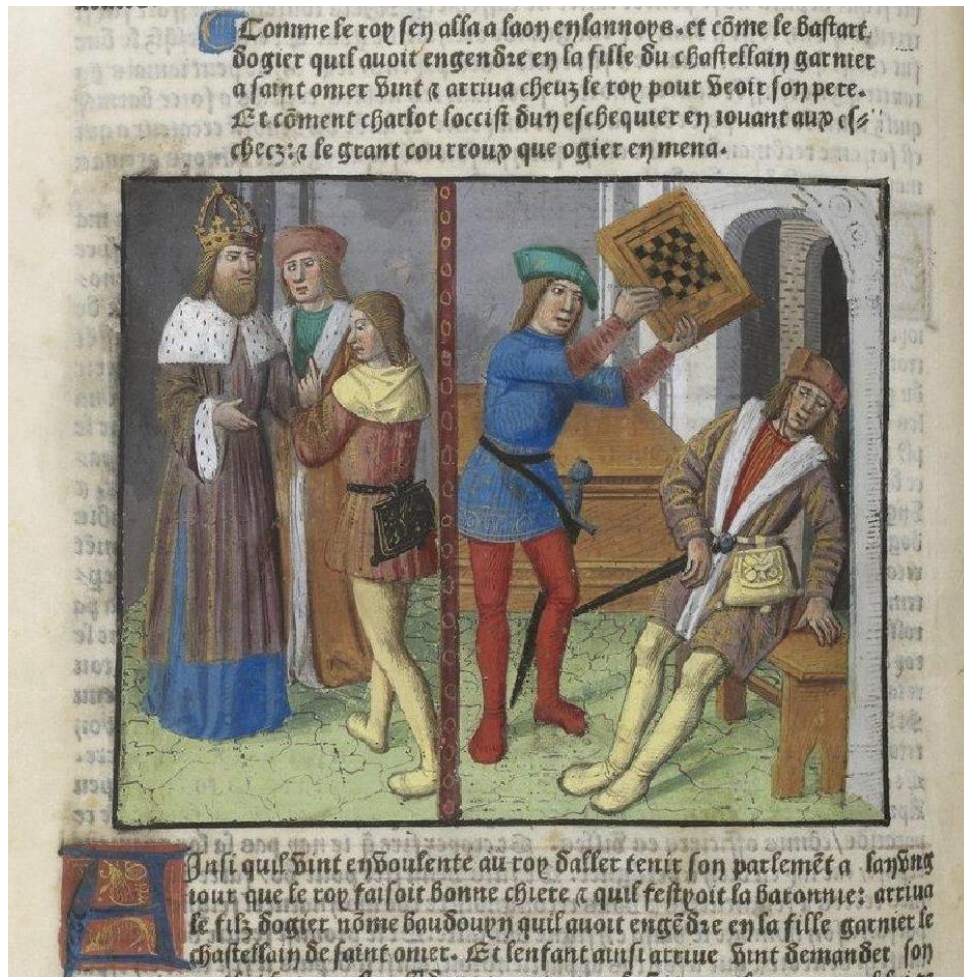 Comme le roy sen alla a laon enlannoys. et cõme le bastart
dogier quil avoit engendre en la fille du chastellain garnier
a saint omer vint ⁊ arriva cheuz le roy pour veoir son pere.
Et cõment charlot loccist dun eschequier en iouant aux es⸗
checz: ⁊ le grant courroux que ogier en mena.
Ainsi quil vint en voulente au roy daller tenir son parlemẽt a lan vng
iour que le roy faisoit bonne chiere ⁊ quil festyoit la baronnie: arriva
le filz dogier nõme baudouyn quil avoit engẽdre en la fille garnier le
chastellain de saint omer. Et lenfant ainsi arrive vint demander son